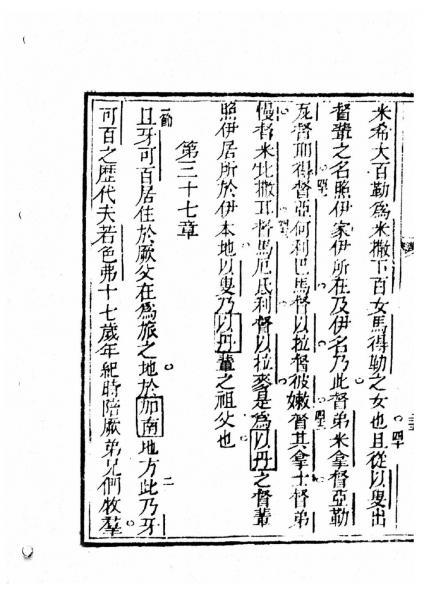 米希大百勒為米撒下百女馬得勒之女也且從以叟出
督輩之名照伊家伊所在及伊名乃此督弟米拿督亞勒
瓦督耶得督亞何利巴馬督以拉督彼嫩督其拿士督弟
慢督米比撒耳督馬厄氏利督以拉麥是為以丹之督叢
照伊居所於伊本地以叟乃以丹輩之祖父也
第三十七章
一節
且牙可百居住於厥父在為旅之地於加南地方此乃牙
二
可百之歷代夫若色弗十七歲年紀時陪厥弟兄們牧羣